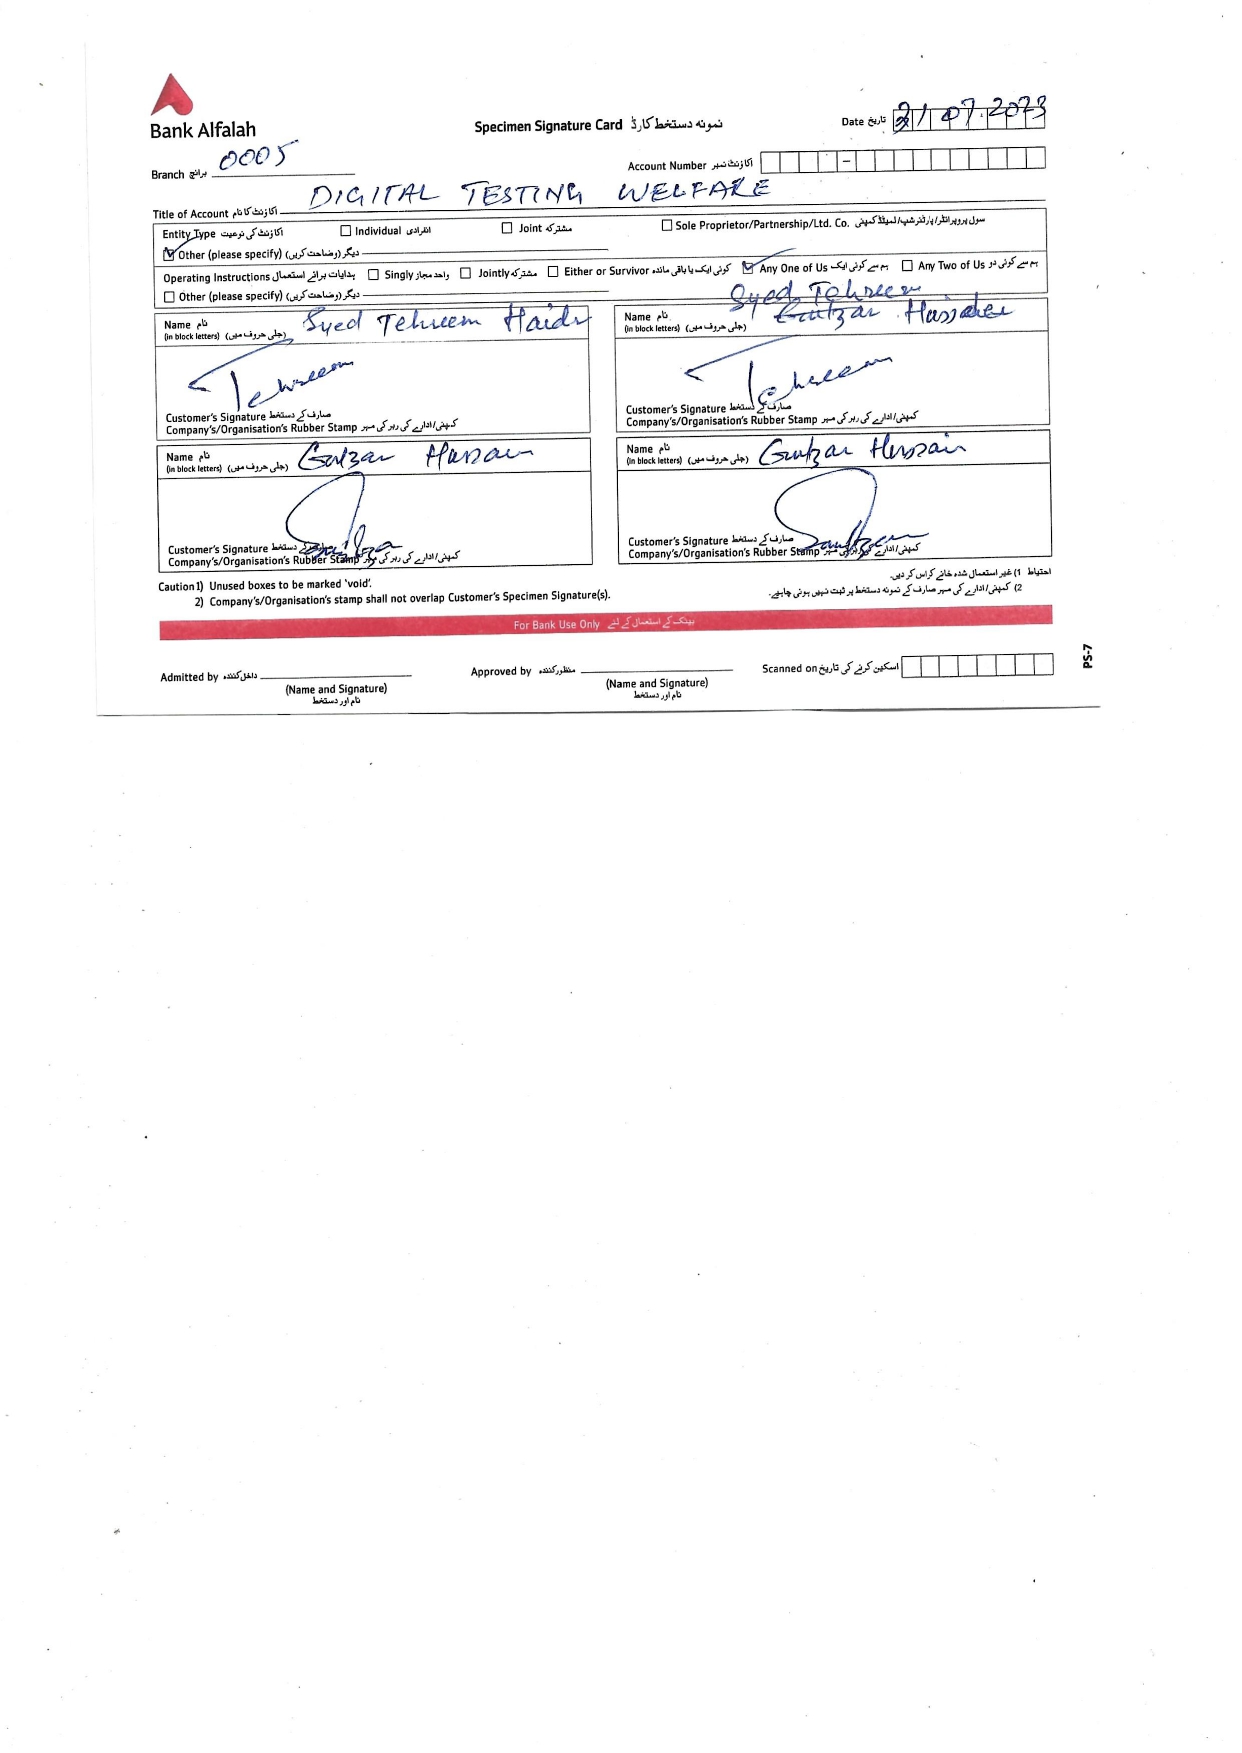 Bank Alfalah
Specimen Signature Card نمونہ دستخط کارڈ
Date تاریخ 21/07.2023
Branch برانچ 0005
Account Number اکاؤنٹ نمبر –
Title of Account اکاؤنٹ کا نام DIGITAL TESTING WELFARE
Entity Type اکاؤنٹ کی نوعیت Individual انفرادی Joint مشترکہ Sole Proprietor/Partnership/Ltd. Co. سول پروپرائٹر/پارٹنرشپ/لمیٹڈ کمپنی
Other (please specify) دیگر (وضاحت کریں)
Operating Instructions ہدایات برائے استعمال Singly واحد مجاز Jointly مشترکہ Either or Survivor کوئی ایک یا باقی ماندہ Any One of Us ہم سے کوئی ایک Any Two of Us ہم سے کوئی دو
Other (please specify) دیگر (وضاحت کریں)
Name نام Syed Tehreem Haidr
(in block letters) (جلی حروف میں)
Syed Tehreem
Name نام Gulzar
(in block letters) (جلی حروف میں)
Tehreem
Customer's Signature صارف کے دستخط
Company's/Organisation's Rubber Stamp کمپنی/ادارے کی ربر کی مہر
Tehreem
Customer's Signature صارف کے دستخط
Company's/Organisation's Rubber Stamp کمپنی/ادارے کی ربر کی مہر
Name نام Gulzar Hussain
(in block letters) (جلی حروف میں)
Name نام Gulzar Hussain
(in block letters) (جلی حروف میں)
Customer's Signature صارف کے دستخط
Company's/Organisation's Rubber Stamp کمپنی/ادارے کی ربر کی مہر
Customer's Signature صارف کے دستخط
Company's/Organisation's Rubber Stamp کمپنی/ادارے کی ربر کی مہر
Caution 1) Unused boxes to be marked 'void'.
2) Company's/Organisation's stamp shall not overlap Customer's Specimen Signature(s).
احتیاط 1) غیر استعمال شدہ خانے کراس کر دیں.
2) کمپنی/ادارے کی مہر صارف کے نمونہ دستخط پر ثبت نہیں ہونی چاہیے.
For Bank Use Only بینک کے استعمال کے لئے
Admitted by داخل کنندہ
(Name and Signature)
نام اور دستخط
Approved by منظور کنندہ
(Name and Signature)
نام اور دستخط
Scanned on اسکین کرنے کی تاریخ
PS-7